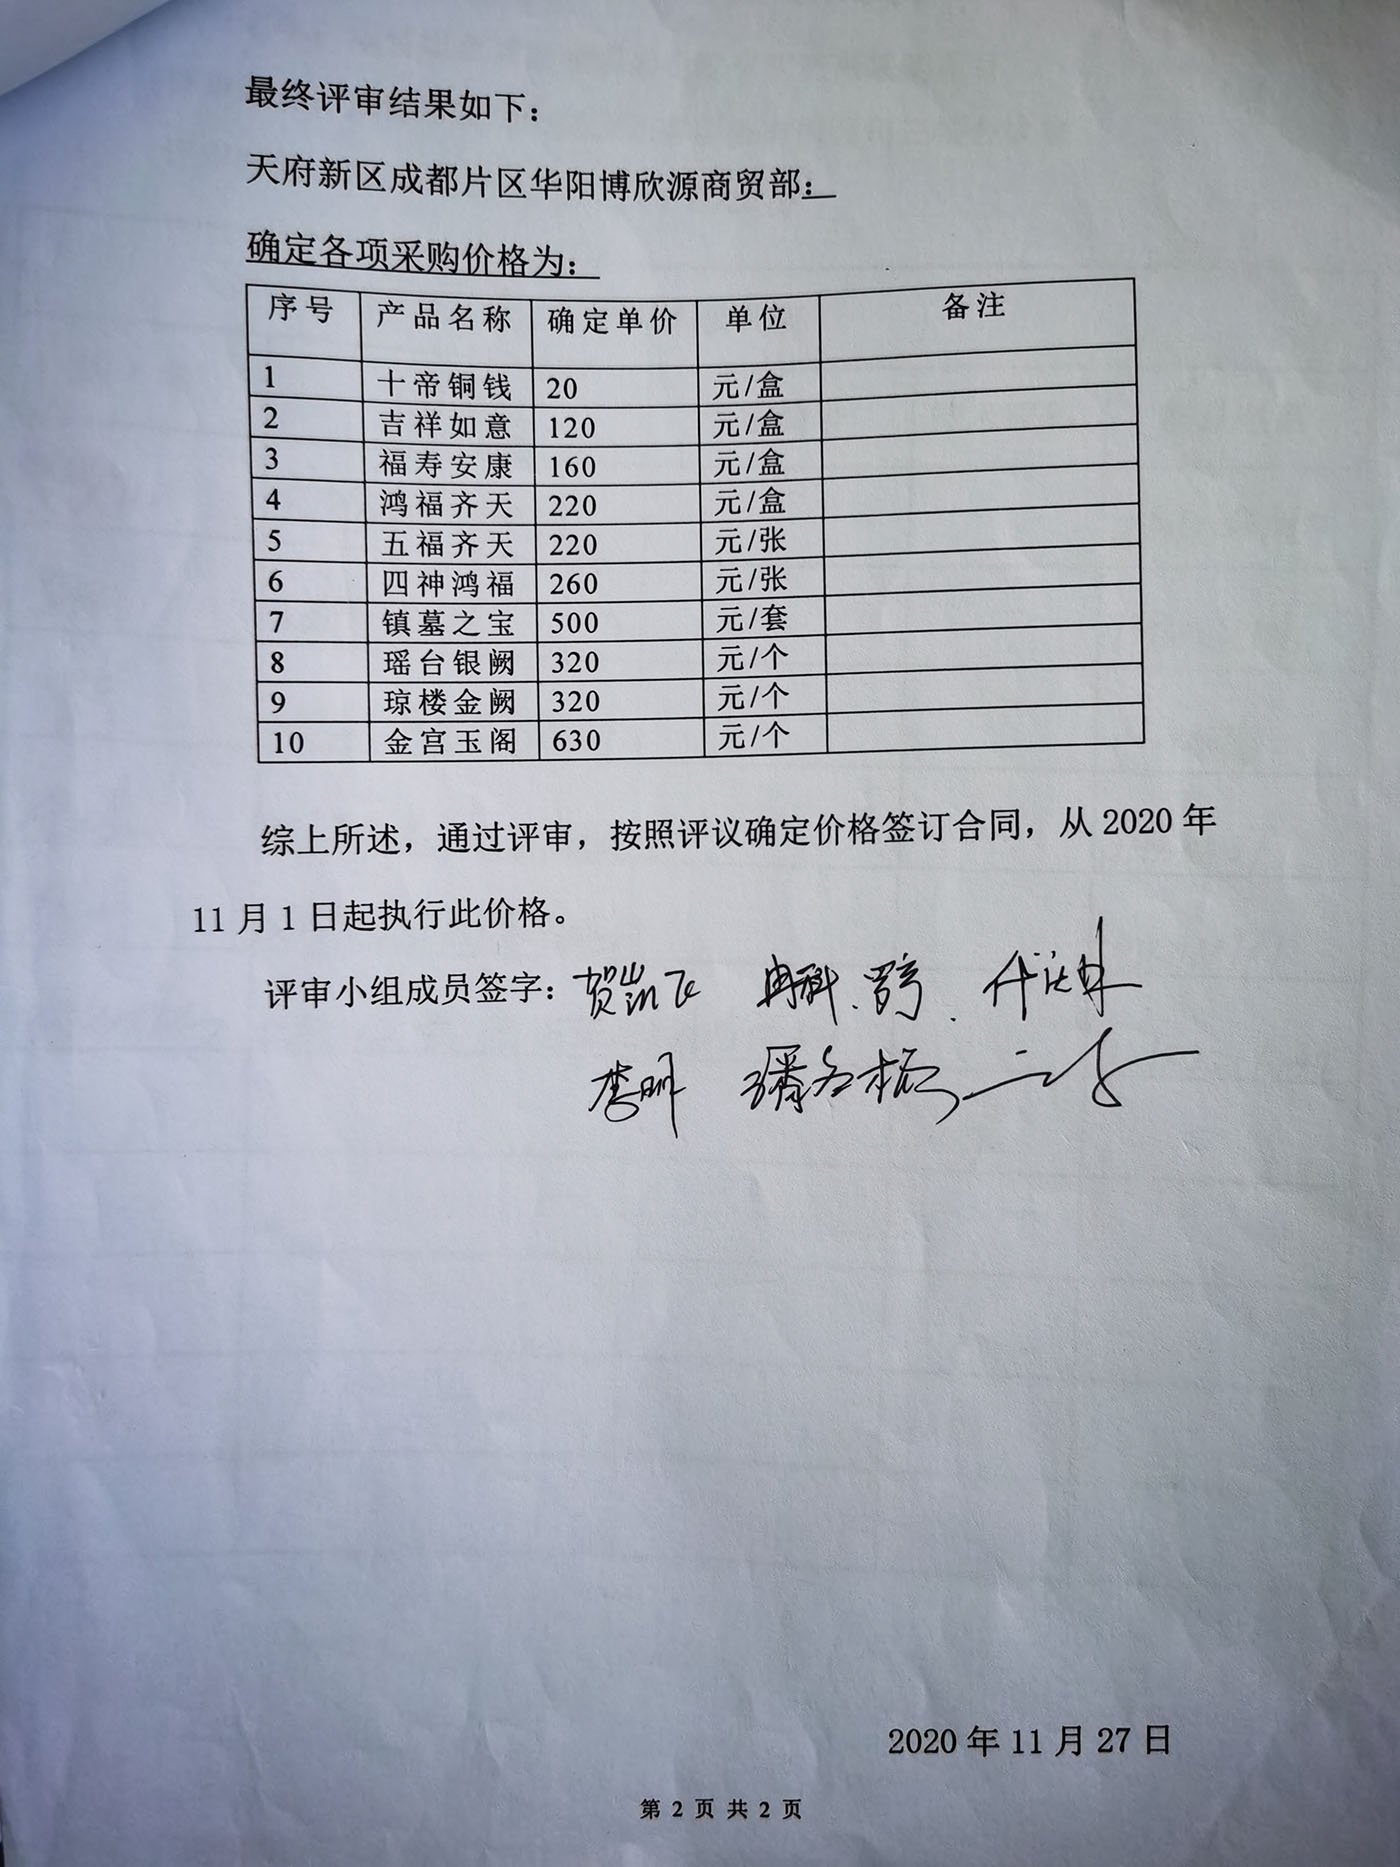 最终评审结果如下：
天府新区成都片区华阳博欣源商贸部：
确定各项采购价格为：
序号 产品名称 确定单价 单位 备注
1 十帝铜钱 20 元/盒
2 吉祥如意 120 元/盒
3 福寿安康 160 元/盒
4 鸿福齐天 220 元/盒
5 五福齐天 220 元/张
6 四神鸿福 260 元/张
7 镇墓之宝 500 元/套
8 瑶台银阙 320 元/个
9 琼楼金阙 320 元/个
10 金宫玉阁 630 元/个
综上所述，通过评审，按照评议确定价格签订合同，从 2020 年
11 月 1 日起执行此价格。
评审小组成员签字：贺凯飞
李明
2020 年 11 月 27 日
第 2 页 共 2 页